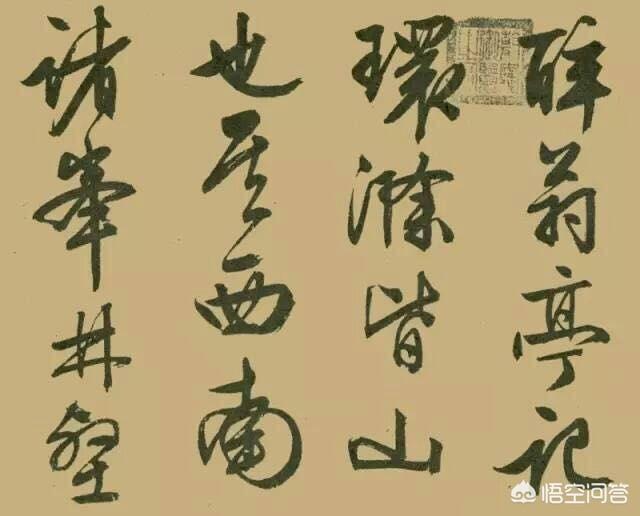 醉翁亭記
環滁皆山
也其西南
諸峯林壑
悟空问答